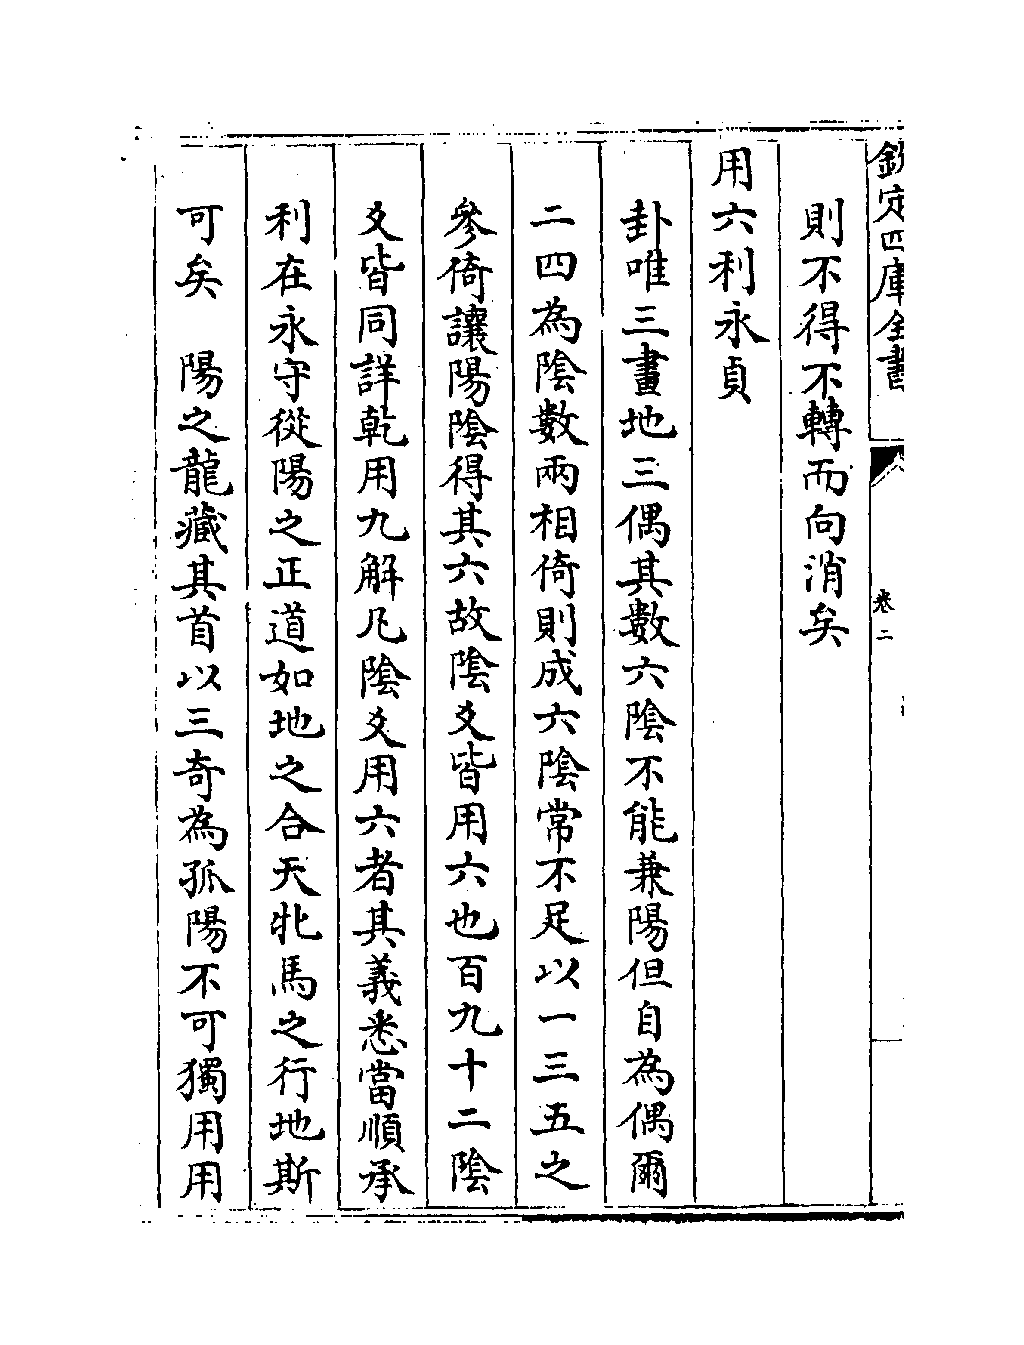 欽定四庫全書
卷二
則不得不轉而向消矣
用六利永貞
卦唯三畫地三偶其數六陰不能兼陽但自為偶爾
二四為陰數兩相倚則成六陰常不足以一三五之
參倚讓陽陰得其六故陰爻皆用六也百九十二陰
爻皆同詳乾用九解凡陰爻用六者其義悉當順承
利在永守從陽之正道如地之合天牝馬之行地斯
可矣　陽之龍藏其首以三奇為孤陽不可獨用用